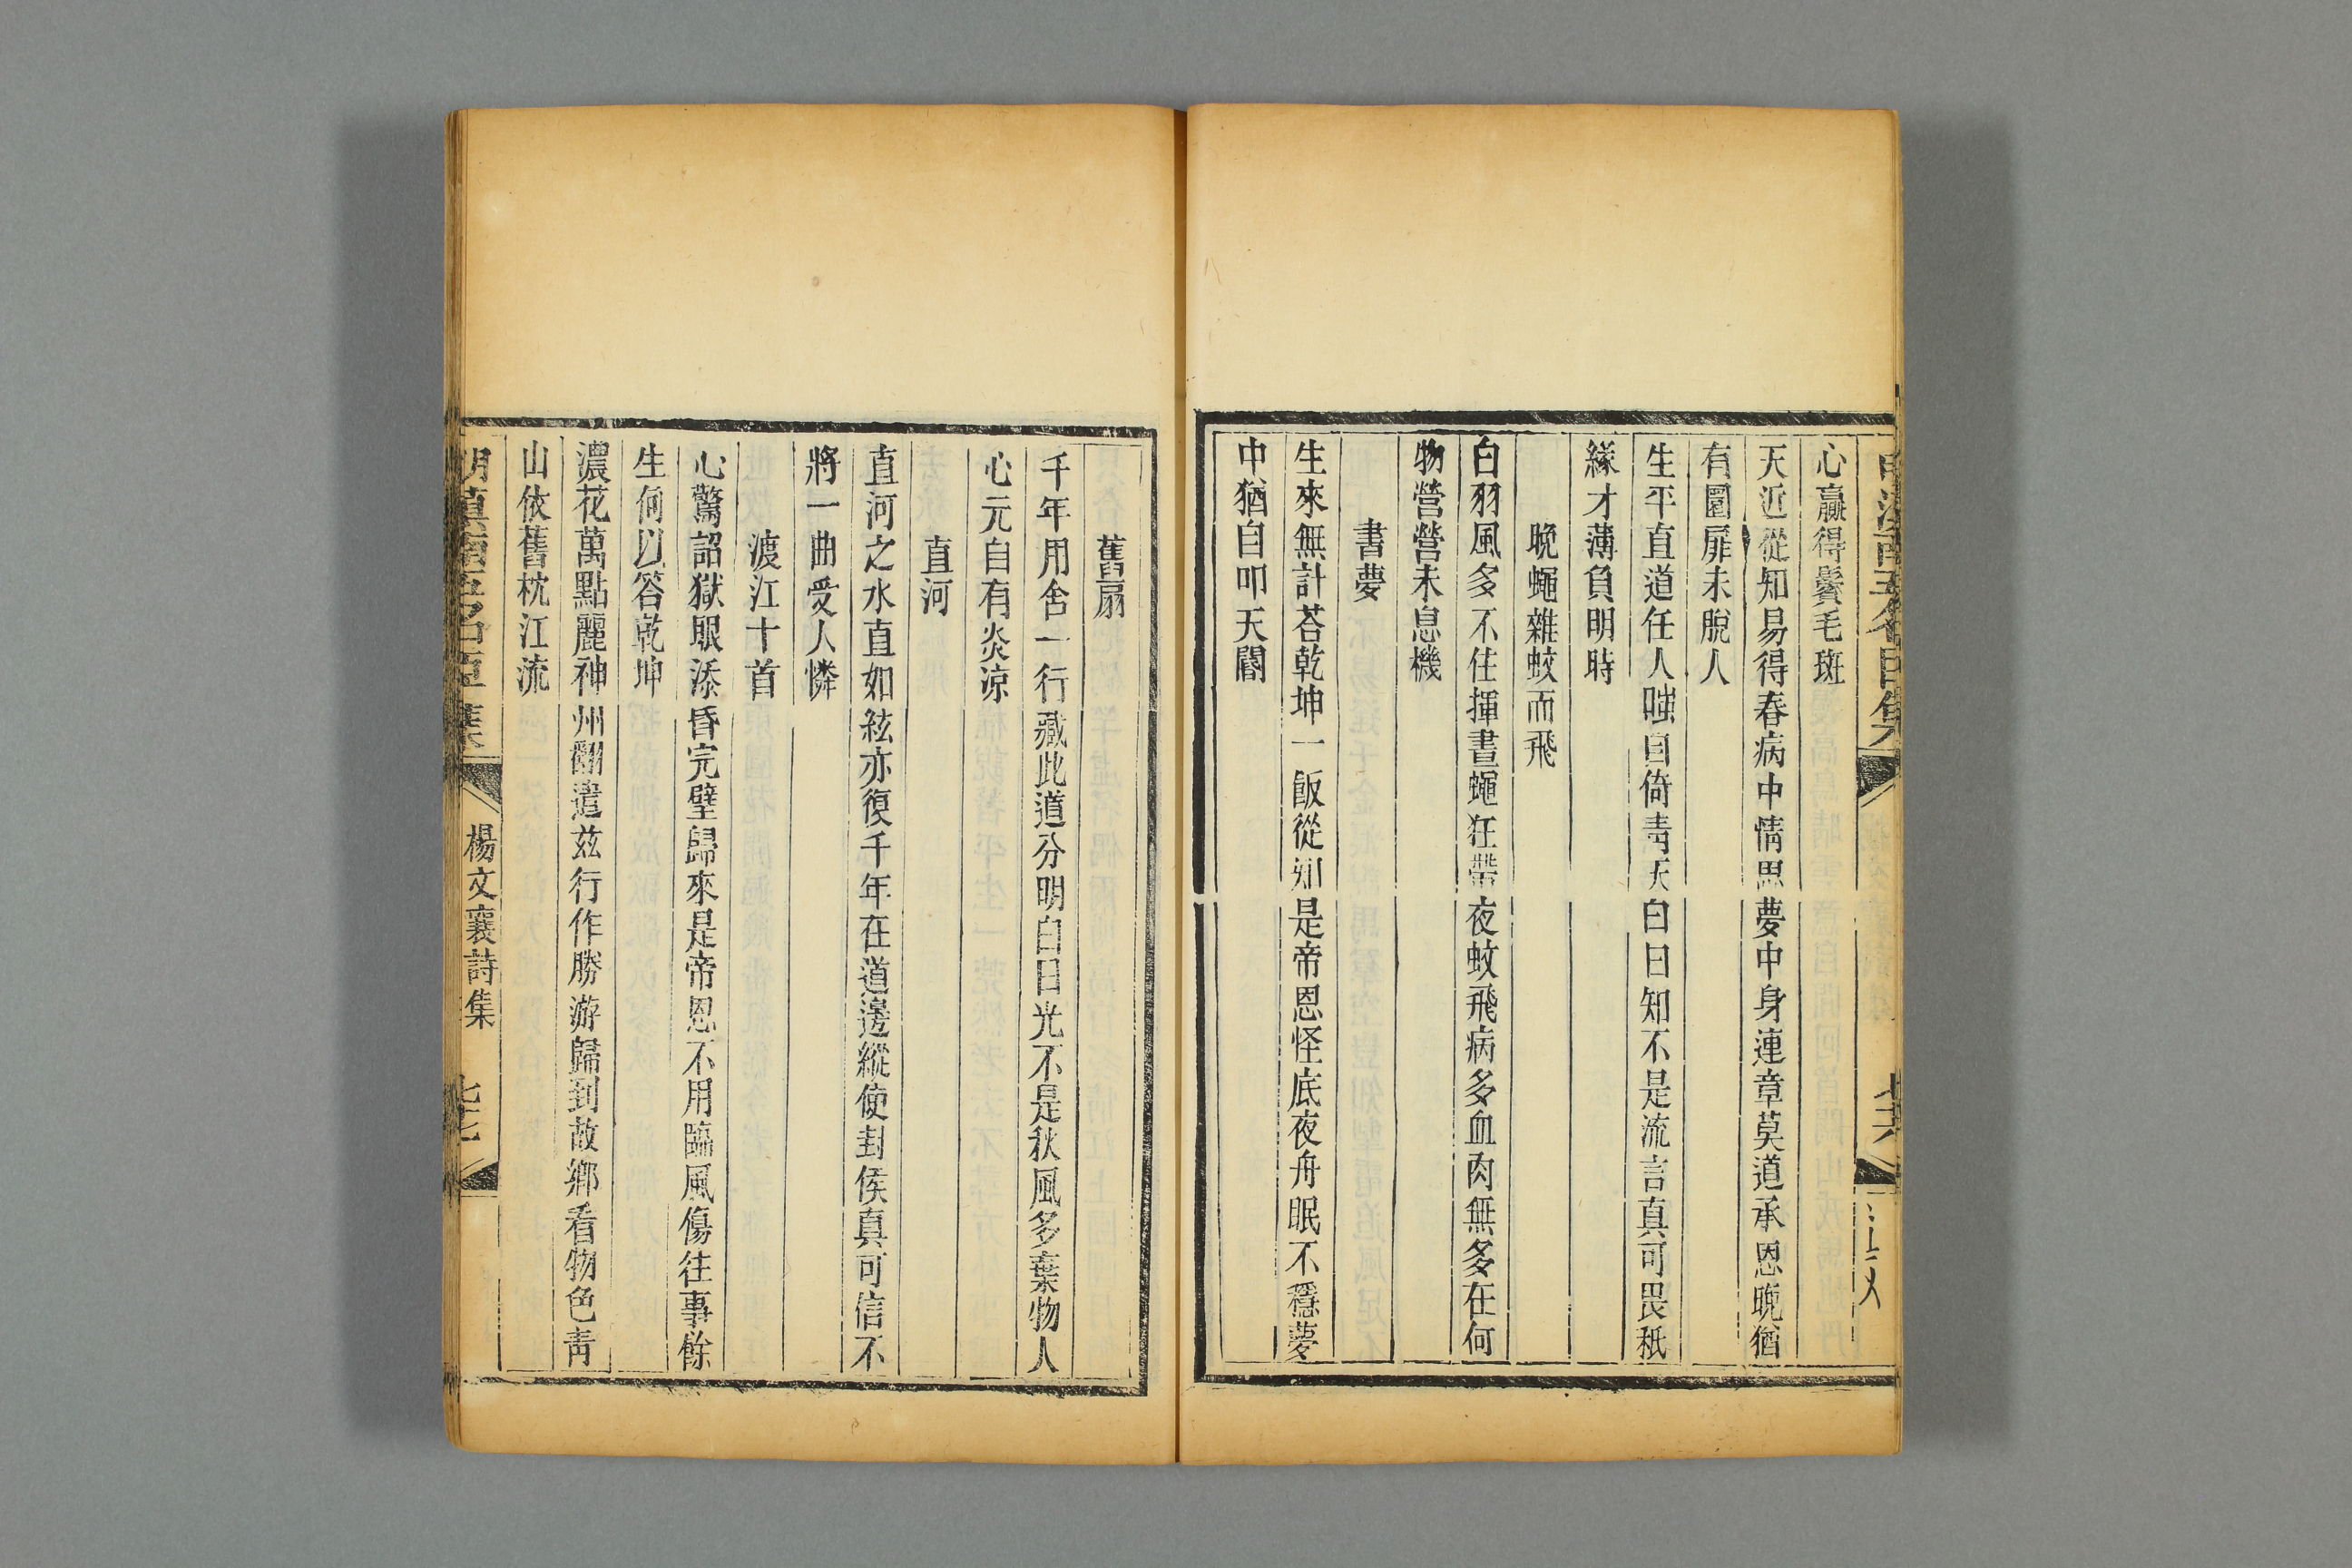 心贏得鬢毛斑
天近從知易得春病中情思夢中身連章莫道承恩晚猶
有圜扉未脫人
生平直道任人嗤自倚青天白日知不是流言真可畏秪
緣才薄負明時
晚蠅雜蚊而飛
白羽風多不住揮晝蠅狂帶夜蚊飛病多血肉無多在何
物營營未息機
書夢
生來無計荅乾坤一飯從知是帝恩怪底夜舟眠不穩夢
中猶自叩天閽
舊扇
千年用舍一行藏此道分明白日光不是秋風多棄物人
心元自有炎涼
直河
直河之水直如絃亦復千年在道邊縱使封侯真可信不
將一曲受人憐
渡江十首
心驚詔獄眼添昏完璧歸來是帝恩不用臨風傷往事餘
生何以答乾坤
濃花萬點麗神州翻遣茲行作勝游歸到故鄉看物色靑
山依舊枕江流
楊文襄詩集